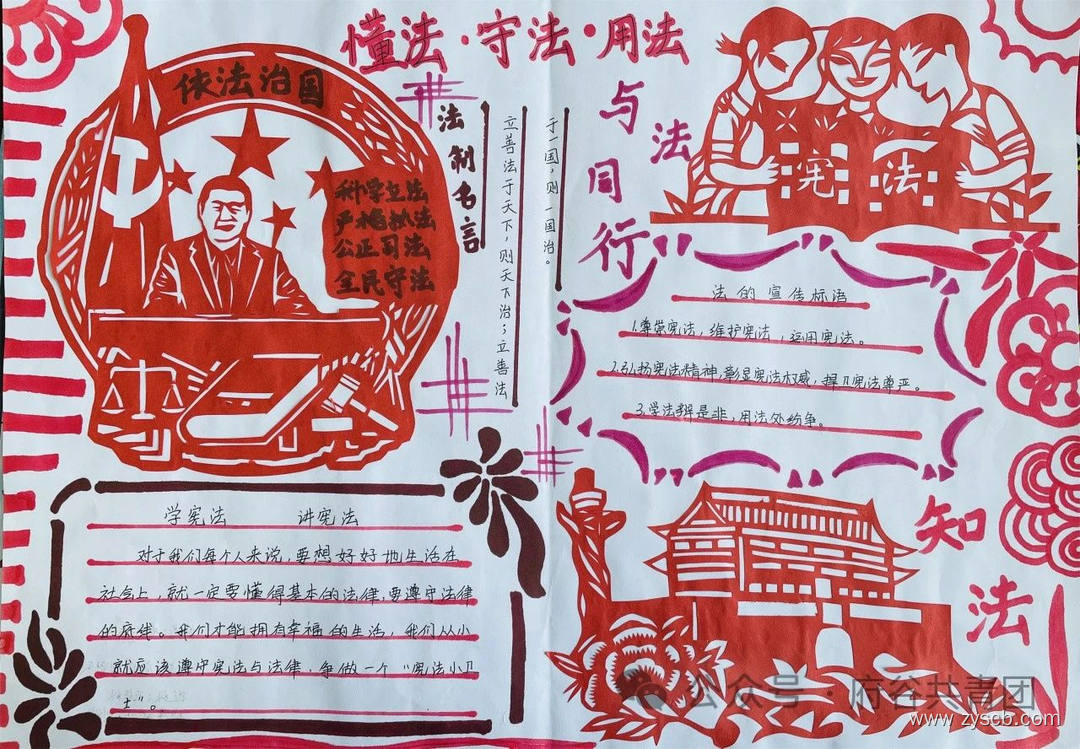 懂法·守法·用法
与法同行
依法治国
科学立法
严格执法
公正司法
全民守法
法制名言
立善法于天下，则天下治；立善法
于一国，则一国治。
宪法
法的宣传标语
1.尊崇宪法，维护宪法，运用宪法。
2.弘扬宪法精神，彰显宪法权威，捍卫宪法尊严。
3.学法辩是非，用法处纷争。
学宪法 讲宪法
对于我们每个人来说，要想好好地生活在
社会上，就一定要懂得基本的法律，要遵守法律
的底线。我们才能拥有幸福的生活，我们从小
就应该遵守宪法与法律，争做一个“宪法小卫
士”。
知法
公众号·府谷共青团
www.zyscb.com